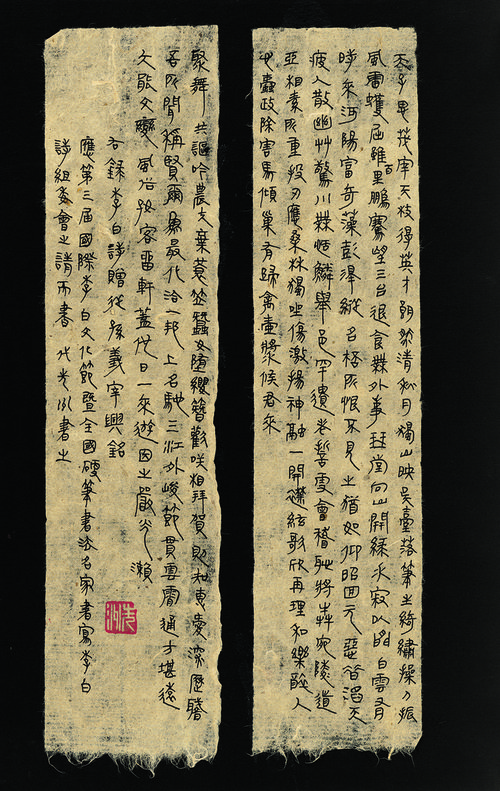 天子思茂宰天枝得英才朗然清秋月獨出映吳臺落筆生綺繡操刀振
風雷蠖屈雖百里鵬騫望三台退食無外事琴堂向山開綠水寂以閒白雲有
時來河陽富奇藻彭澤縱名杯所恨不見之猶如仰昭回元惡昔滔天
疲人散幽艸驚川無活鱗舉邑罕遺老誓雪會稽恥將奔宛陵道
亞相素所重投刃應桑林獨坐傷激揚神融一開襟絃歌欣再理和樂醉人
心蠹政除害馬傾巢有歸禽壺漿候君來
聚舞共謳吟農夫棄蓑笠蠶女墮纓簪歡咲相拜賀則知惠愛深歷職
吾所聞稱賢爾為最化洽一邦上名馳三江外峻節貫雲霄通方堪遠
大能文變風俗好客留軒蓋他日一來遊因之嚴光瀨
右錄李白詩贈從孫義宰興銘
應第三届國際李白文化節暨全國硬筆書法名家書寫李白
詩組委會之請而書 代光 書之